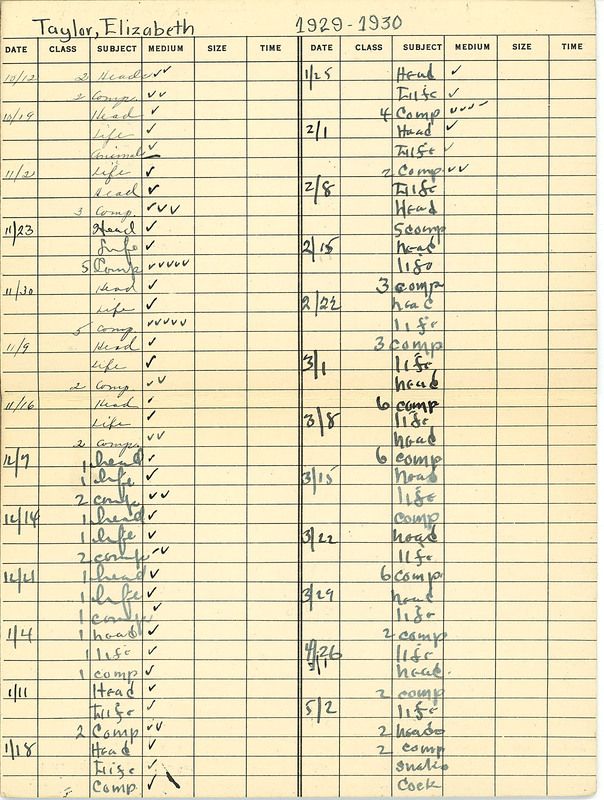 Taylor, Elizabeth 1929-1930
DATE CLASS SUBJECT MEDIUM SIZE TIME DATE CLASS SUBJECT MEDIUM SIZE TIME
10/12 2 Heads ✓✓
2 Comp. ✓✓
10/19 Head ✓
Life ✓
Animal ✓
11/2 Life ✓
Head ✓
3 Comp. ✓✓✓
11/23 Head ✓
Life ✓
5 Comp ✓✓✓✓✓
11/30 Head ✓
Life ✓
5 Comp ✓✓✓✓✓
11/9 Head ✓
Life ✓
2 Comp ✓✓
11/16 Head ✓
Life ✓
2 Comp. ✓✓
12/7 1 head ✓
1 life ✓
2 comp ✓✓
12/14 1 head ✓
1 life ✓
2 comp ✓✓
12/21 1 head ✓
1 life ✓
1 comp ✓
1/4 1 head ✓
1 life ✓
1 comp ✓
1/11 Head ✓
Life ✓
2 Comp ✓✓
1/18 Head ✓
Life ✓
Comp ✓
1/25 Head ✓
Life ✓
4 Comp ✓✓✓✓
2/1 Head ✓
Life ✓
2 Comp ✓✓
2/8 Life
Head
5 comp
2/15 head
life
3 comp
2/22 head
life
3 comp
3/1 life
head
6 comp
3/8 life
head
6 comp
3/15 head
life
comp
3/22 head
life
6 comp
3/29 head
life
2 comp
4/26 life
head
2 comp
5/2 life
2 heads
2 comp
snake
Cock